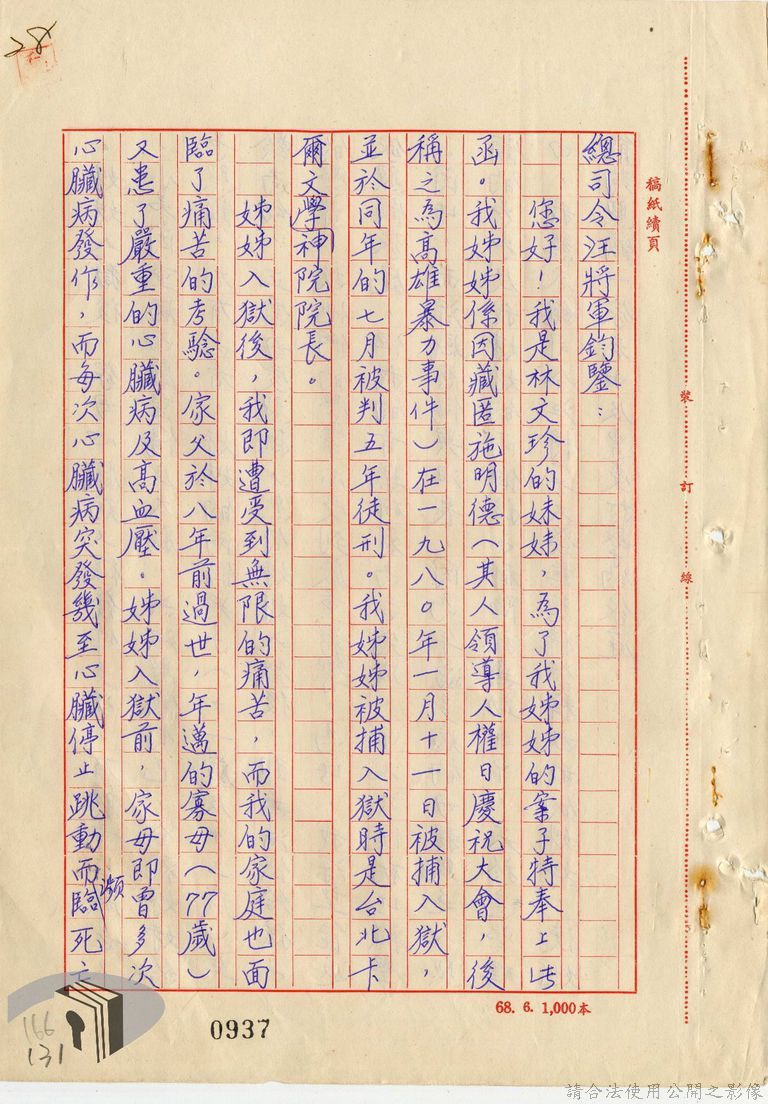 稿紙續頁
裝
訂
線
總司令汪將軍鈞鑒：
您好！我是林文珍的妹妹，為了我姊姊的案子特奉上此
函。我姊姊係因藏匿施明德（其人領導人權日慶祝大會，後
稱之為高雄暴力事件）在一九八〇年一月十一日被捕入獄，
並於同年的七月被判五年徒刑。我姊姊被捕入獄時是台北卡
爾文學神院院長。
姊姊入獄後，我即遭受到無限的痛苦，而我的家庭也面
臨了痛苦的考驗。家父於八年前過世，年邁的寡母（77歲）
又患了嚴重的心臟病及高血壓。姊姊入獄前，家母即曾多次
心臟病發作，而每次心臟病突發幾至心臟停止跳動而瀕臨死亡
68. 6. 1,000本
0937
166
131
28
請合法使用公開之影像